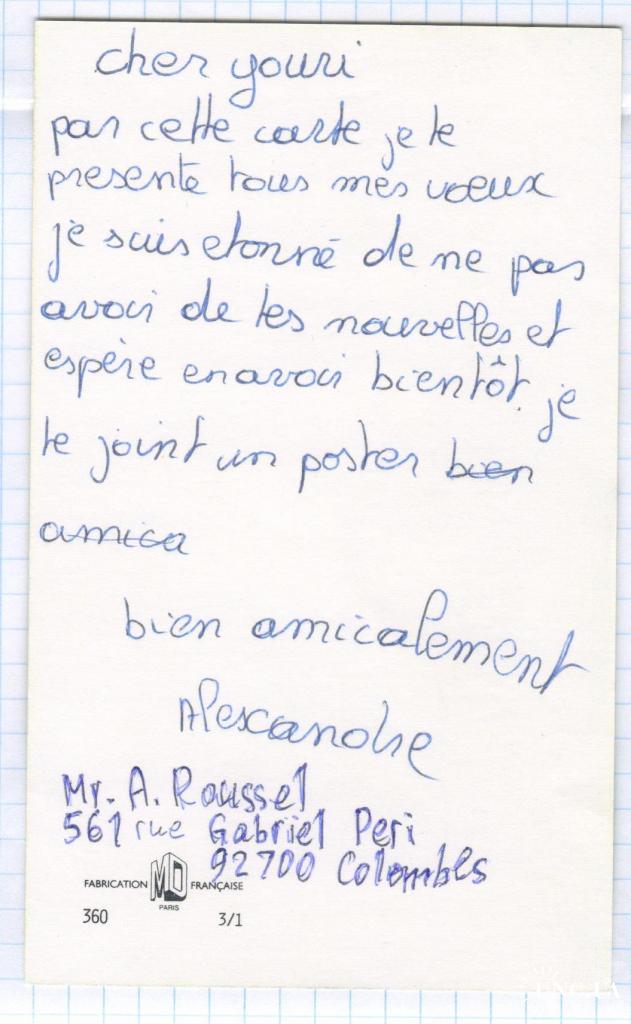 cher youri
par cette carte je te
presente tous mes voeux
je suis etonné de ne pas
avoir de tes nouvelles et
espère en avoir bientôt. je
te joint un poster bien
amica
bien amicalement
Alexandre
Mr. A. Roussel
561 rue Gabriel Peri
92700 Colombes
FABRICATION MD FRANÇAISE
PARIS
360 3/1